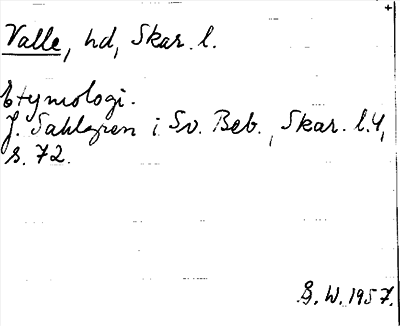 Valle, hd, Skar. l.
Etymologi.
J. Sahlgren i Sv. Beb., Skar. l. 4,
s. 72.
G. W. 1957.